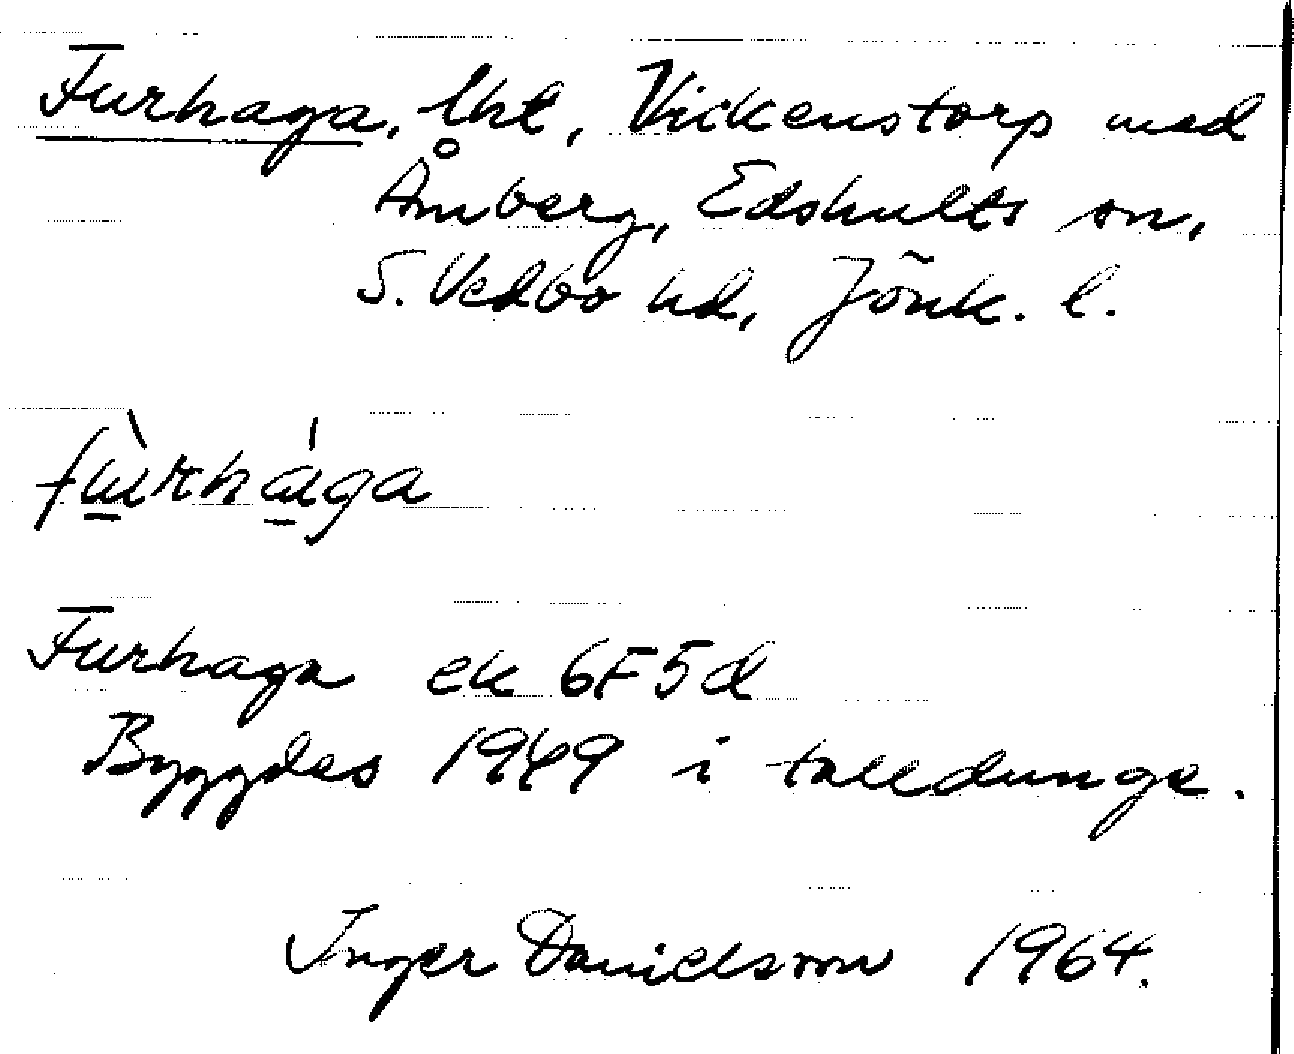 Furhaga, lht, Vickenstorp med
Åmberg, Edshults sn,
S. Vedbo hd, Jönk. l.
fu̠̇̀rhȧ̠́ga
Furhaga ek 6F5d
Byggdes 1949 i talldunge.
Inger Danielsson 1964.